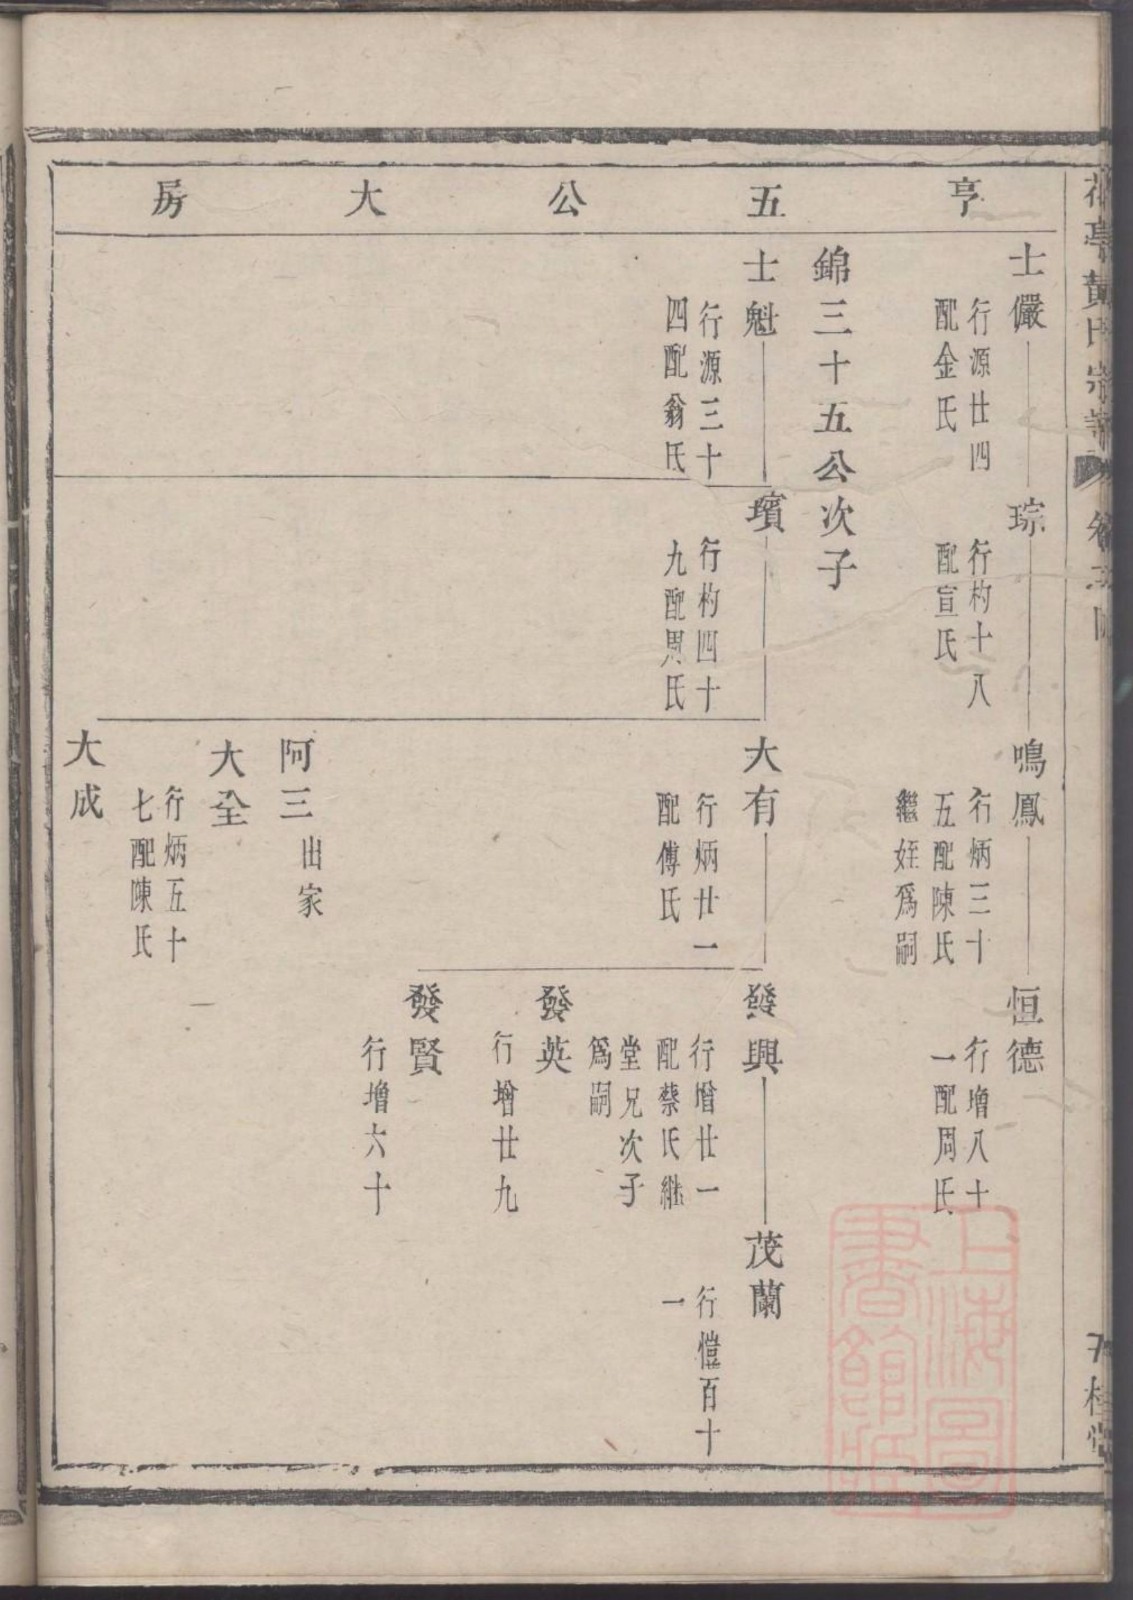 亨五公大房
士儼
行源廿四
配金氏
琮
行杓十八
配宣氏
鳴鳳
行炳三十
五配陳氏
繼姪為嗣
恒德
行增八十
一配周氏
錦三十五公次子
士魁
行源三十
四配翁氏
璸
行杓四十
九配周氏
大有
行炳廿一
配傅氏
發興
行增廿一
配蔡氏繼
堂兄次子
為嗣
茂蘭
行愷百十
一
發英
行增廿九
發賢
行增六十
阿三
出家
大全
行炳五十
七配陳氏
大成
上海圖
書館藏